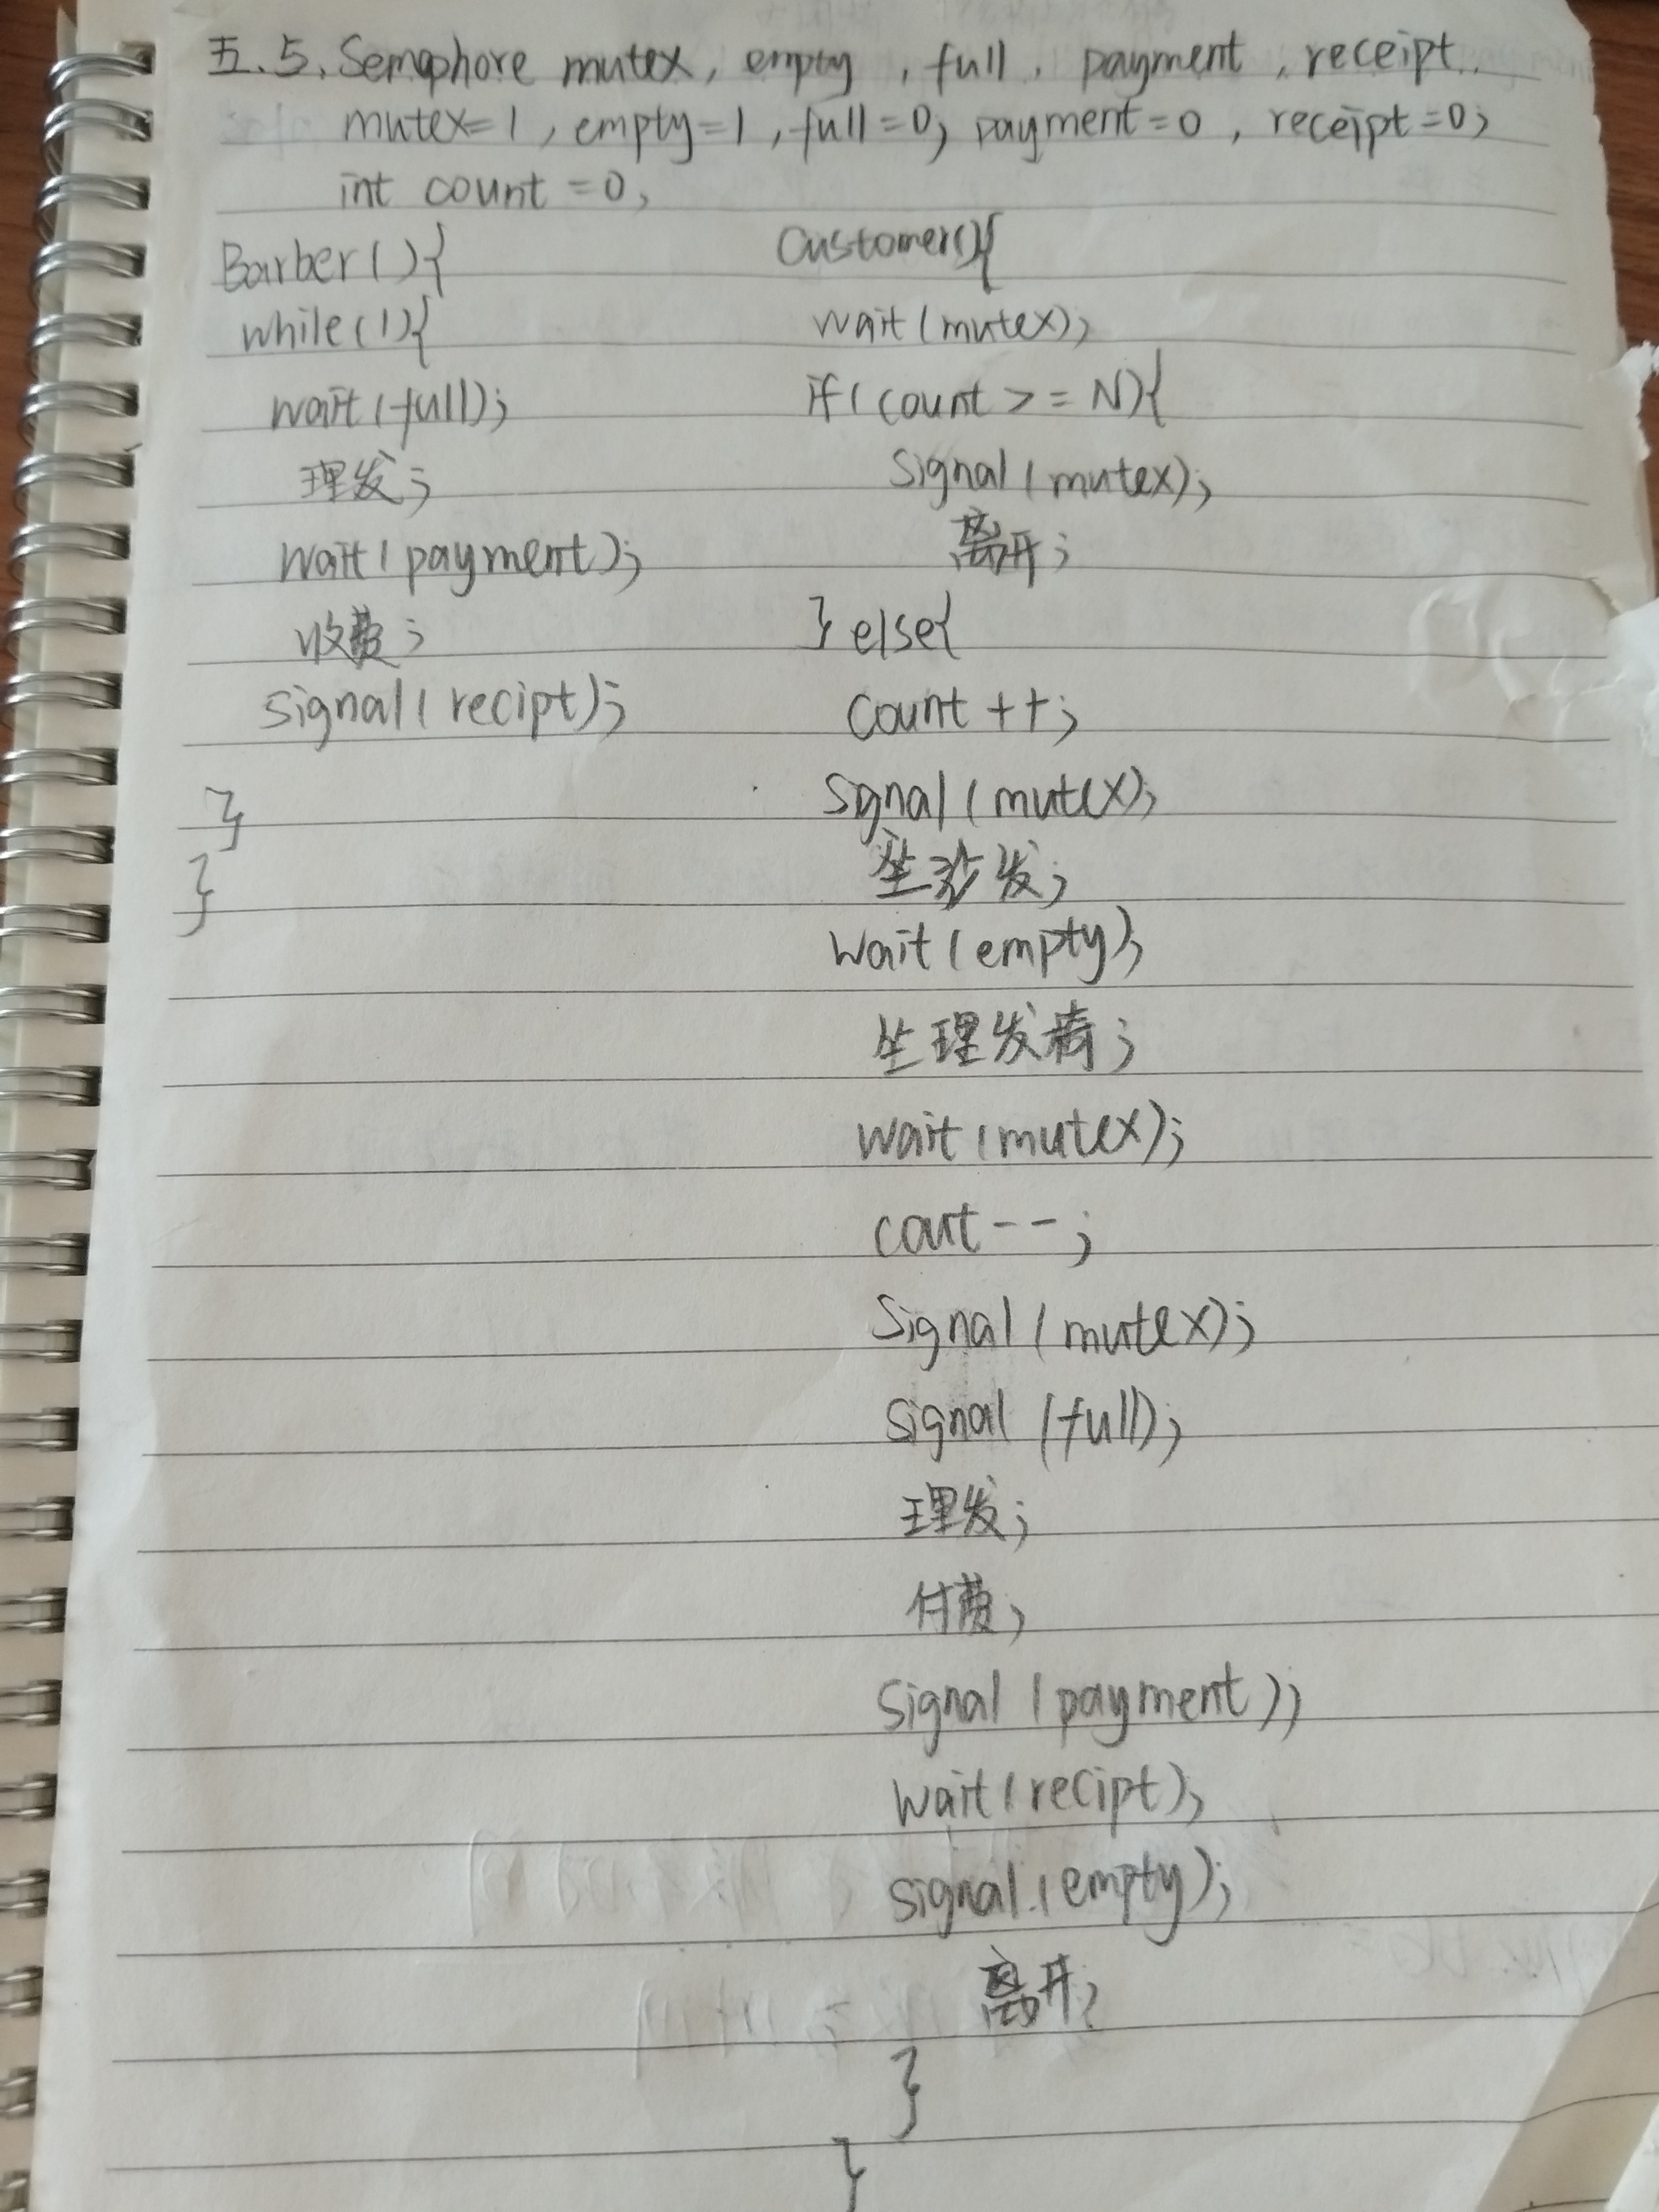 五.5. Semaphore mutex, empty, full, payment, receipt.
mutex=1, empty=1, full=0, payment=0, receipt=0;
int count =0,
Barber(){
while(1){
wait(full);
理发;
wait(payment);
收费;
signal(recipt);
}
}
Customer(){
wait(mutex);
if(count >= N){
Signal(mutex);
离开;
} else{
count ++;
Signal(mutex);
坐沙发;
wait(empty);
坐理发椅;
wait(mutex);
cout--;
Signal(mutex);
signal(full);
理发;
付费;
signal(payment);
wait(recipt);
signal.(empty);
离开;
}
}